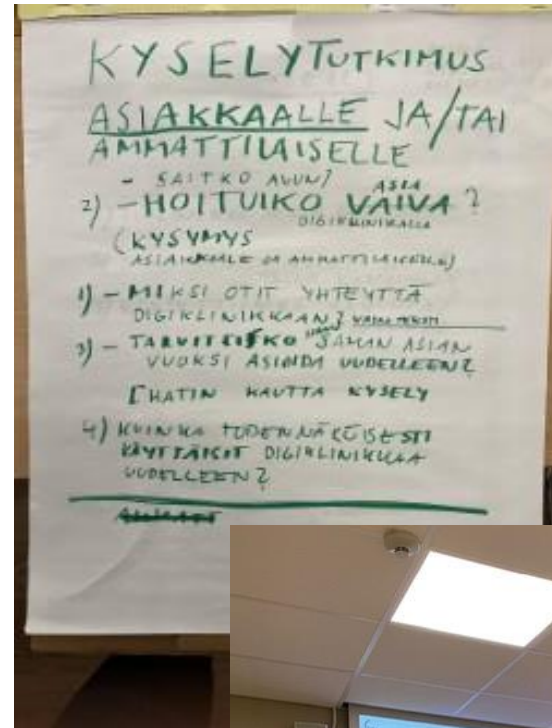 KYSELYTUTKIMUS
ASIAKKAALLE JA/TAI
AMMATTILAISELLE
- SAITKO AVUN?
ASIA
2) - HOITUIKO VAIVA?
DIGIKLINIKALLA
(KYSYMYS
ASIAKKAALLE JA AMMATTILAISELLE)
1) - MIKSI OTIT YHTEYTTÄ
DIGIKLINIKKAAN?
3) - TARVITSITKO SAMAN ASIAN
VUOKSI ASIOIDA UUDELLEEN?
[CHATIN KAUTTA KYSELY
4) KUINKA TODENNÄKÖISESTI
KÄYTTÄISIT DIGIKLINIKKAA
UUDELLEEN?